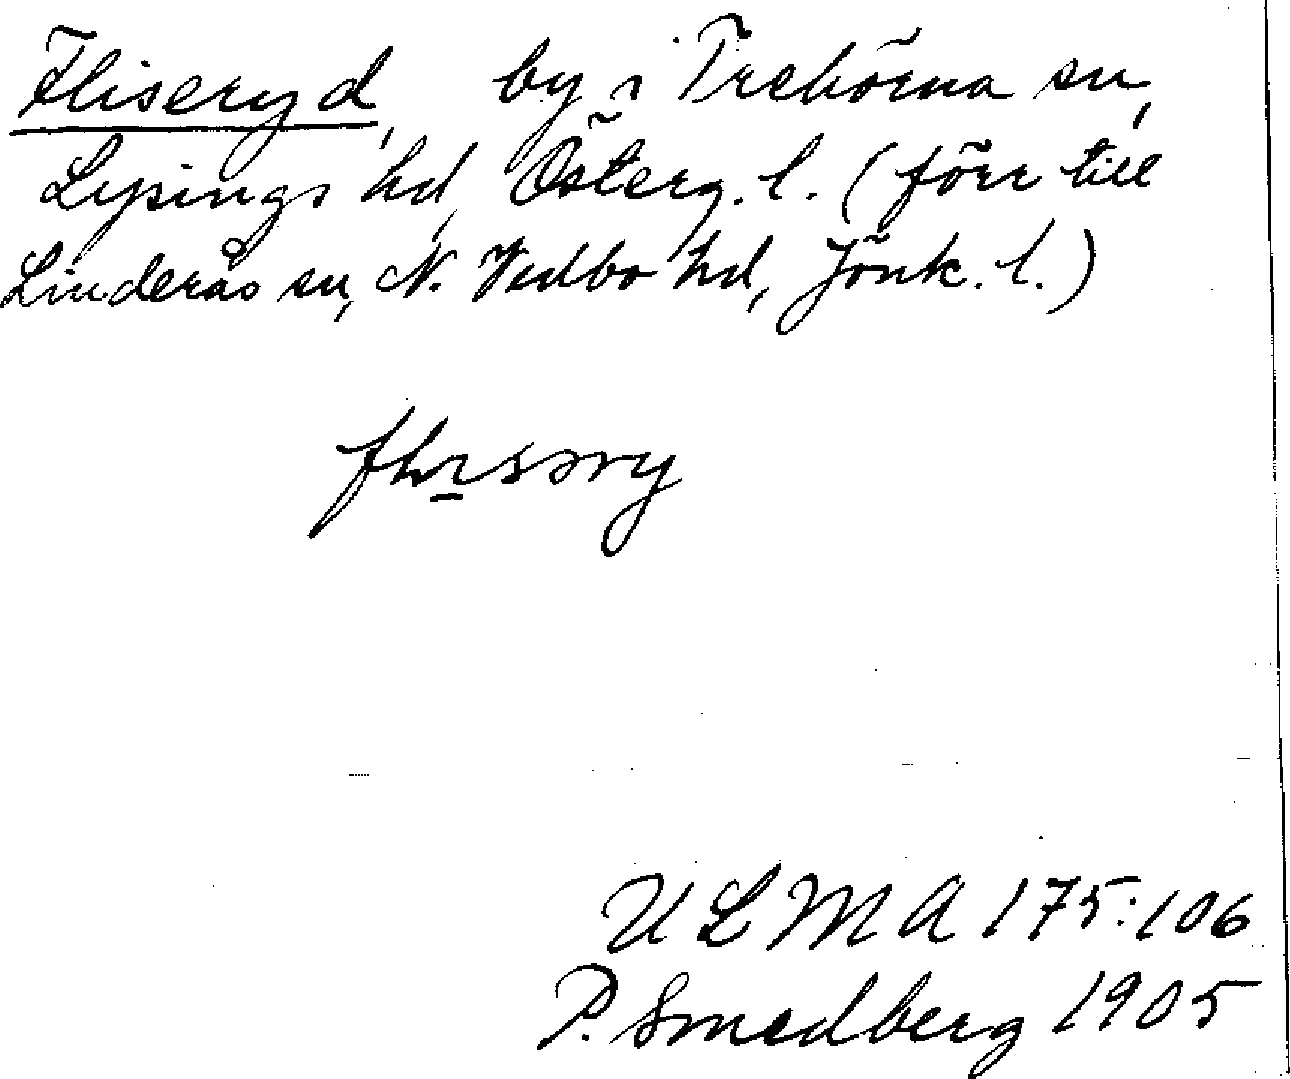 Fliseryd, by i Trehörna sn,
Lysings hd, Österg. l. (förr till
Linderås sn, N. Vedbo hd, Jönk. l.)
ULMA 175:106
P. Smedberg 1905